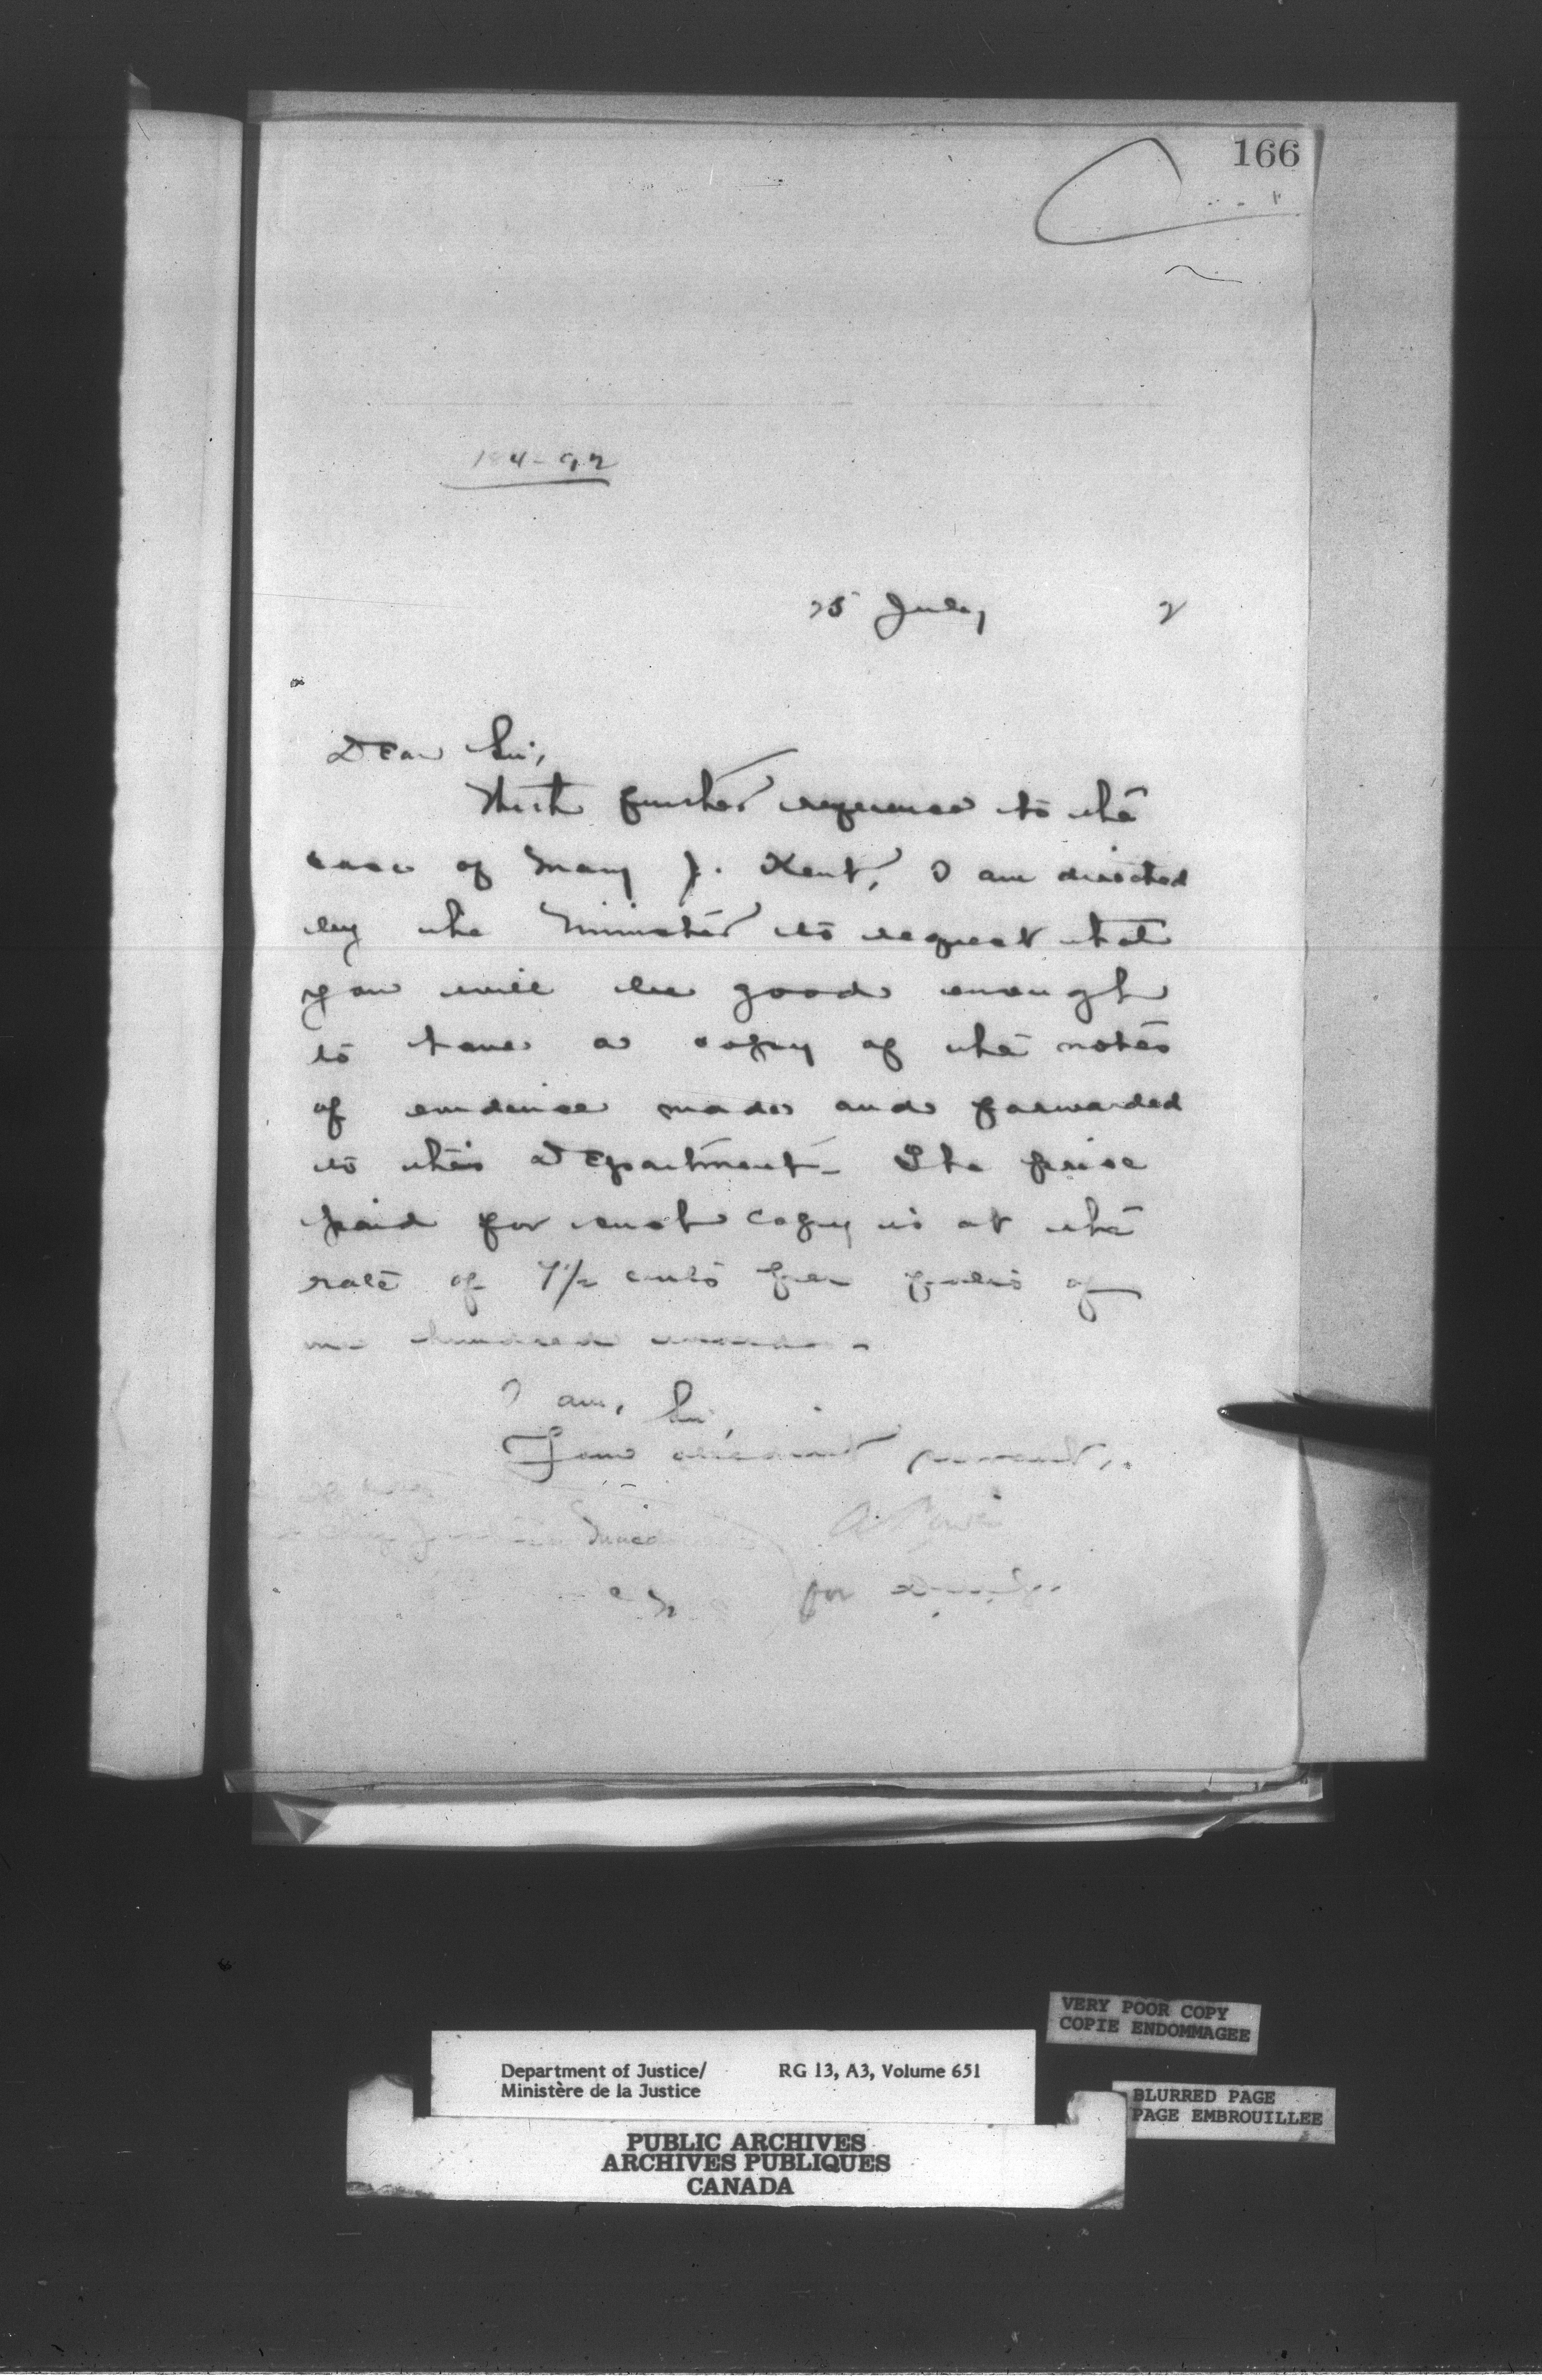 166
25 July 2
Dear Sir,
With further reference to the
case of Mary J. Kent, I am directed
by the Minister to request that
you will be good enough
to have a copy of the notes
of evidence made and forwarded
to this Department. The price
paid for such copy is at the
rate of 7½ cents per folio of
one hundred words.
I am, Sir,
Your obedient servant,
A. Power
for
VERY POOR COPY
COPIE ENDOMMAGEE
Department of Justice/ RG 13, A3, Volume 651
Ministère de la Justice
BLURRED PAGE
PAGE EMBROUILLEE
PUBLIC ARCHIVES
ARCHIVES PUBLIQUES
CANADA